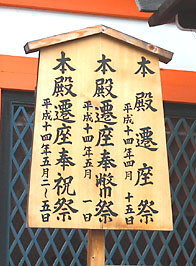 本殿遷座祭
平成十四年四月 十五日
本殿遷座奉幣祭
平成十四年五月 一日
本殿遷座奉祝祭
平成十四年五月二〜五日